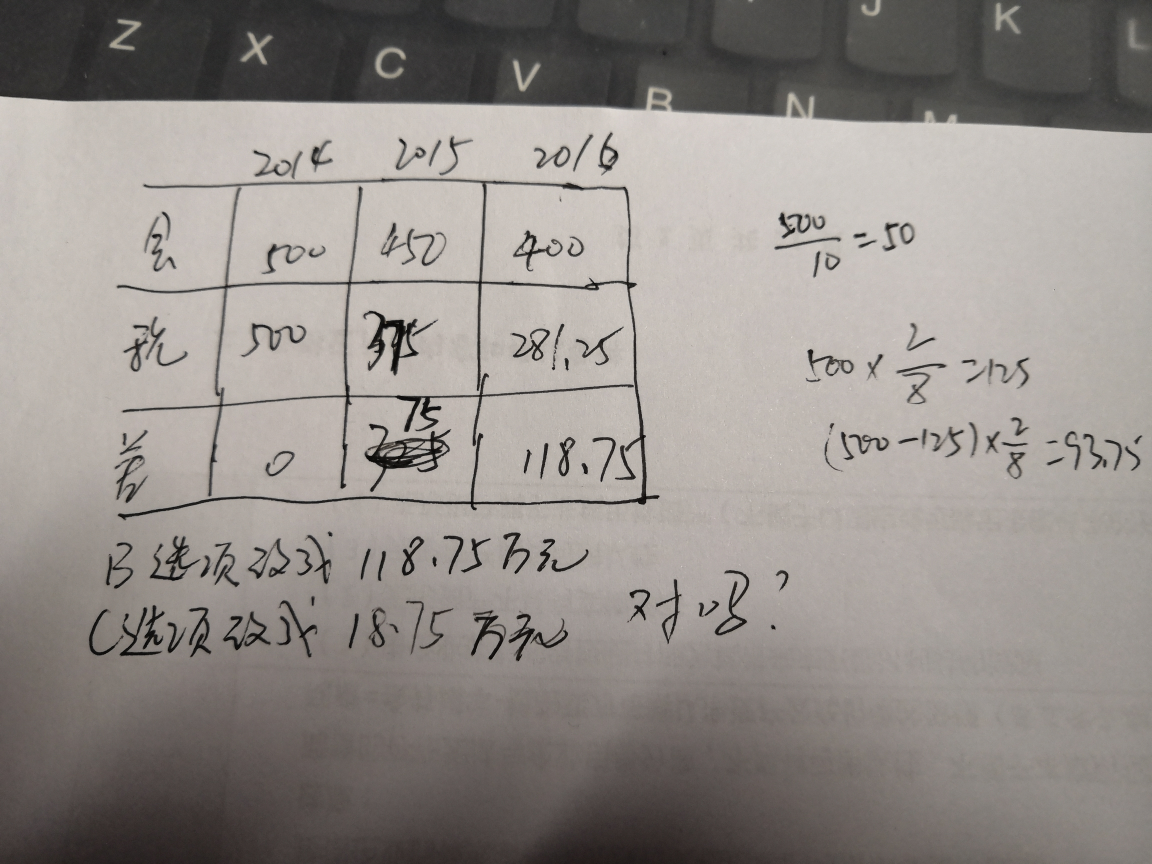 Z X C V B N M J K L
2014 2015 2016
会 500 450 400
税 500 375 281.25
差 0 75 118.75
500/10 =50
500× 2/8 =125
(500-125)× 2/8 =93.75
B选项改成 118.75万元
C选项改成 18.75万元 对吗?